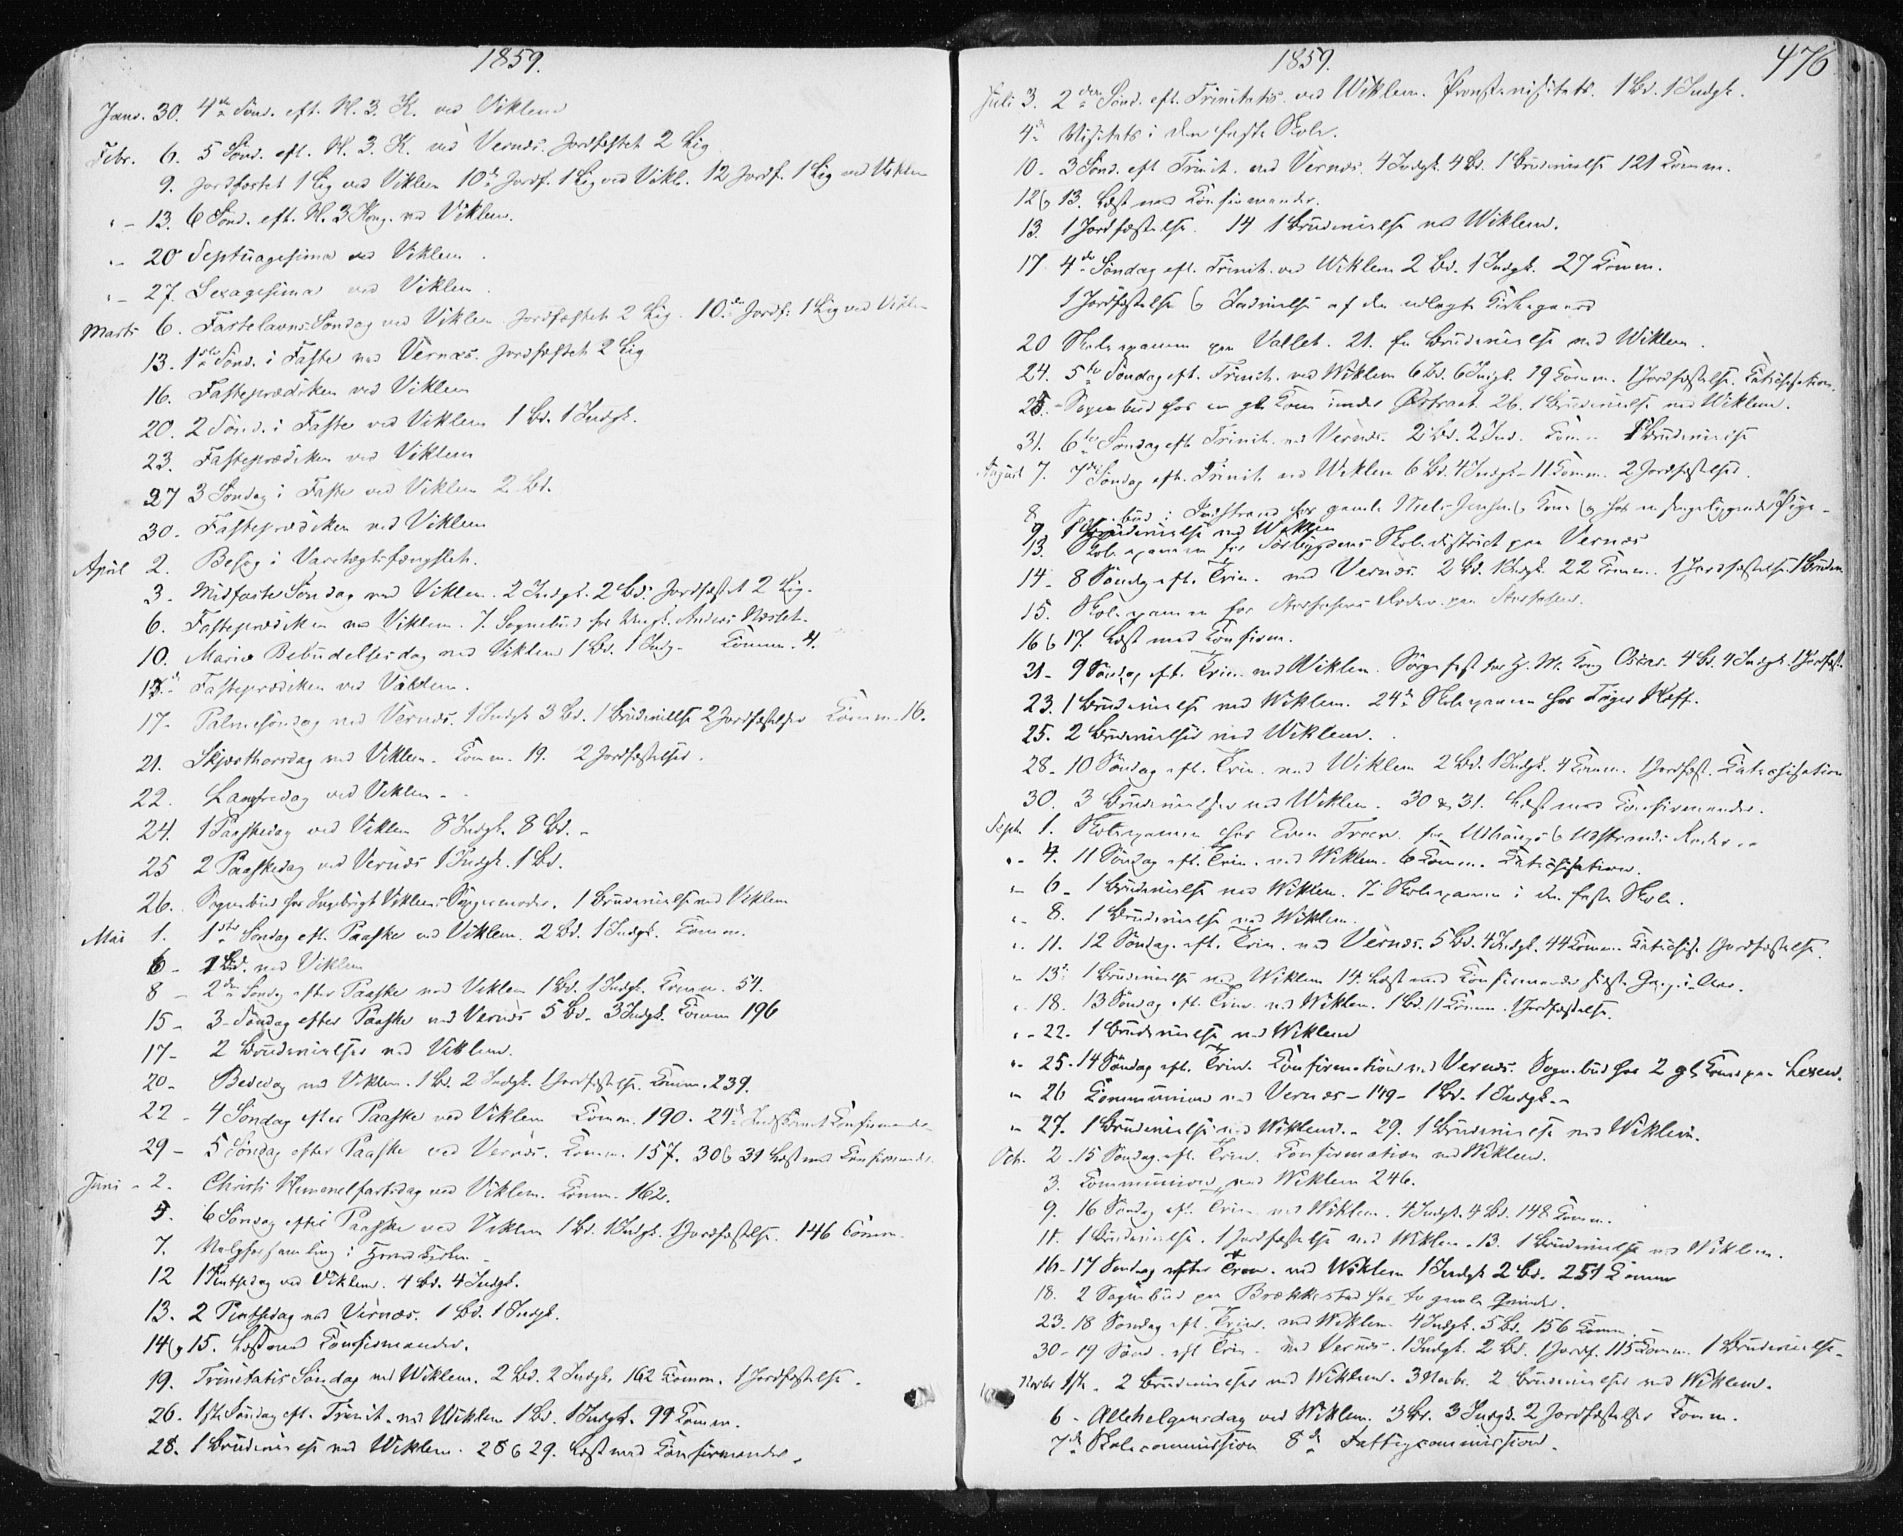 1859.
Janr. 30. 4de Sønd. eft. H. 3. K. ved Viklem
Febr. 6. 5 Sønd. eft. H. 3. K. ved Vernæs. Jordfæstet 2 Lig
9. Jordfæstet 1 Lig ved Viklem 10de Jordf. 1 Lig ved Vikl. 12 Jordf. 1 Lig ved Viklem
" - 13. 6 Sønd. eft. H. 3 Kong. ved Viklem.
" - 20 Septuagesima ved Viklem
" - 27. Sexagesima ved Viklem
Marts 6. Fastelavns Søndag ved Viklem Jordfæstet 2 Lig. 10de Jordf. 1 Lig ved Viklem
13. 1ste Sønd. i Faste ved Vernæs. Jordfæstet 2 Lig
16. Fasteprædiken ved Viklem
20. 2 Sønd. i Faste ved Viklem 1 Bd. 1 Indgk.
23. Fasteprædiken ved Viklem
27 3 Søndag i Faste ved Viklem 2 Bd.
30. Fasteprædiken ved Viklem
April 2. Besøg i Varetægtsfængslet.
3. Midfaste Søndag ved Viklem. 2 Indgk. 2 Bd. Jordfæstet 2 Lig.
6. Fasteprædiken ved Viklem. 7. Sognebud for Anders
10. Mariæ Bebudelsesdag ved Viklem 1 Bd. 1 Indg. Komm. 4.
13. Fasteprædiken ved Viklem.
17- Palmesøndag ved Vernæs. 1 Indgk 3 Bd. 1 Brudevielse 2 Jordfæstelser Komm. 16.
21. Skjærthorsdag ved Viklem. Komm. 19. 2 Jordfæstelser.
22. Langfredag ved Viklem -
24. 1 Paaskedag ved Viklem 8 Indgk. 8 Bd. -
25 2 Paaskedag ved Vernæs 1 Indgk. 1 Bd.
26. Sognebud hos Ingebrigt Viklems Svigermoder. 1 Brudevielse ved Viklem
Mai 1. 1ste Søndag eft. Paaske ved Viklem. 2 Bd. 1 Indgk. Komm.
6 - 1 Bd. ved Viklem
8 - 2den Søndag efter Paaske ved Viklem 1 Bd. 1 Indgk. Komm. 54.
15 - 3- Søndag efter Paaske ved Vernæs 5 Bd. 3 Indgk. Komm 196
17- 2 Brudevielser ved Viklem.
20- Bededag ved Viklem. 1 Bd. 2 Indgk. 1 Jordfæstelse. Komm. 239.
22 - 4 Søndag efter Paaske ved Viklem Komm. 190. 24de Indskrevet Konfirmander
29 - 5 Søndag efter Paaske ved Vernæs. Komm. 157. 30 & 31 Læst med Konfirmander.
Juni - 2. Christi Himmelfartsdag ved Viklem. Komm. 162.
5. 6 Søndag efter Paaske ved Viklem 1 Bd. 1 Indgk. 1 Jordfæstelse. 146 Komm.
7. Valgforsamling i
12 1 Pintsedag ved Viklem. 4 Bd. 4 Indgk.
13. 2 Pintsedag ved Vernæs. 1 Bd. 1 Indgk.
14 & 15. Læst med Konfirmander.
19. Trinitatis Søndag ved Wiklem. 2 Bd. 2 Indgk. 162 Komm. 1 Jordfæstelse.
26. 1ste Søndag eft. Trinit. ved Wiklem 1 Bd. 1 Indgk. 99 Komm.
28. 1 Brudevielse ved Wiklem. 28 & 29. Læst med Konfirmander.
1859. 476
Juli 3. 2den Sønd. eft. Trinitatis. ved Wiklem. Provstevisitats. 1 Bd. 1 Indgk.
4de Visitats i den faste Skole.
10. 3 Sønd. eft Trinit. ved Vernæs. 4 Indgk. 4 Bd. 1 Brudevielse 121 Komm.
12 & 13. Læst med Konfirmander.
13. 1 Jordfæstelse. 14 1 Brudevielse ved Wiklem.
17 4de Søndag eft. Trinit. ved Wiklem 2 Bd. 1 Indgk. 27 Komm.
1 Jordfæstelse & Indvielse af den udlagte Kirkegaard
20 Skoleexamen paa Vallet. 21. En Brudevielse ved Wiklem.
24. 5te Søndag eft. Trinit. ved Wiklem 6 Bd. 6 Indgk. 19 Komm. 1 Jordfæstelse. Katechisation.
25. Sognebud hos en gl. Kone under Østraat. 26. 1 Brudevielse ved Wiklem.
31. 6te Søndag eft Trinit. ved Vernæs. 2 Bd. 2 Ind. Komm. 1 Brudevielse
August 7. 7de Søndag eft. Trinit ved Wiklem 6 Bd. 4 Indgk- 11 Komm. 2 Jordfæstelser.
8. Sognebud i Indstrand hos gamle Niels Jensen & Kone & hos en sengeliggende Pige -
9. 1 Brudevielse ved Wiklem
13. Skoleexamen for Skoledistrict paa Vernæs
14 - 8 Søndag eft. Trin. ved Vernæs. 2 Bd. 1 Indgk. 22 Komm. 1 Jordfæstelse 1 Brudev.
15. Skoleexamen for Roder paa
16 & 17. Læst med Konfirm.
21 - 9 Søndag eft. Trin. ved Wiklem. Sørgefest for H. M. Kong Oscar. 4 Bd. 4 Indgk. 1 Jordfæst.
23. 1 Brudevielse ved Wiklem. 24de Skoleexamen hos
25. 2 Brudevielser ved Wiklem.
28 - 10 Søndag eft. Trin. ved Wiklem 2 Bd. 1 Indgk. 4 Komm. 1 Jordfæst. Katechisation
30. 3 Brudevielser ved Wiklem. 30 & 31. Læst med Konfirmander.
Septb. 1. Skoleexamen hos Even Troen. for & Udstrands Roder. -
" - 4. 11 Søndag eft. Trin. ved Wiklem. 6 Komm. Katechisation.
" - 6 - 1 Brudevielse ved Wiklem. 7. Skoleexamen i den faste Skole.
" - 8. 1 Brudevielse ved Wiklem.
" - 11. 12 Søndag. eft. Trin. ved Vernæs. 5 Bd. 4 Indgk. 44 Komm. Katechis. 1 Jordfæstelse.
" - 13de 1 Brudevielse ved Wiklem 14. Læst med Konfirmander sidste Gang i Aar.
" - 18. 13 Søndag eft. Trin. ved Wiklem. 1 Bd. 11 Komm. 1 Jordfæstelse.
" - 22. 1 Brudevielse ved Wiklem
" - 25. 14 Søndag eft. Trin. Konfirmation ved Vernæs. Sognebud hos 2 gl. Koner paa Lexen.
" - 26 Kommunion ved Vernæs - 149 - 1 Bd. 1 Indgk. -
" - 27. 1 Brudevielse ved Wiklem. - 29. 1 Brudevielse ved Wiklem.
Oct. 2. 15 Søndag. eft. Trin. Konfirmation ved Wiklem.
3. Kommunion ved Wiklem 246.
9. 16 Søndag eft. Trin. ved Wiklem. 4 Indgk. 4 Bd. 148 Komm.
11. 1 Brudevielse. 1 Jordfæstelse ved Wiklem. 13. 1 Brudevielse ved Wiklem.
16 - 17 Søndag efter Trin. ved Wiklem 1 Indgk 2 Bd. 251 Komm
18. 2 Sognebud paa Brækkestad hos to gamle Qvinder.
23. 18 Søndag eft. Trin. ved Wiklem 4 Indgk. 5 Bd. 156 Komm.
30 - 19 Sønd. eft Trin. ved Vernæs. 1 Indgk. 2 Bd. 1 Jordf. 115 Komm. 1 Brudevielse -
Novbr 1ste. 2 Brudevielser ved Wiklem. 3 Novbr. 2 Brudevielser ved Wiklem.
6 - Allehelgensdag ved Wiklem. 3 Bd. 3 Indgk. 2 Jordfæstelser Komm.
7de Skolecommission 8de Fattigcommission.